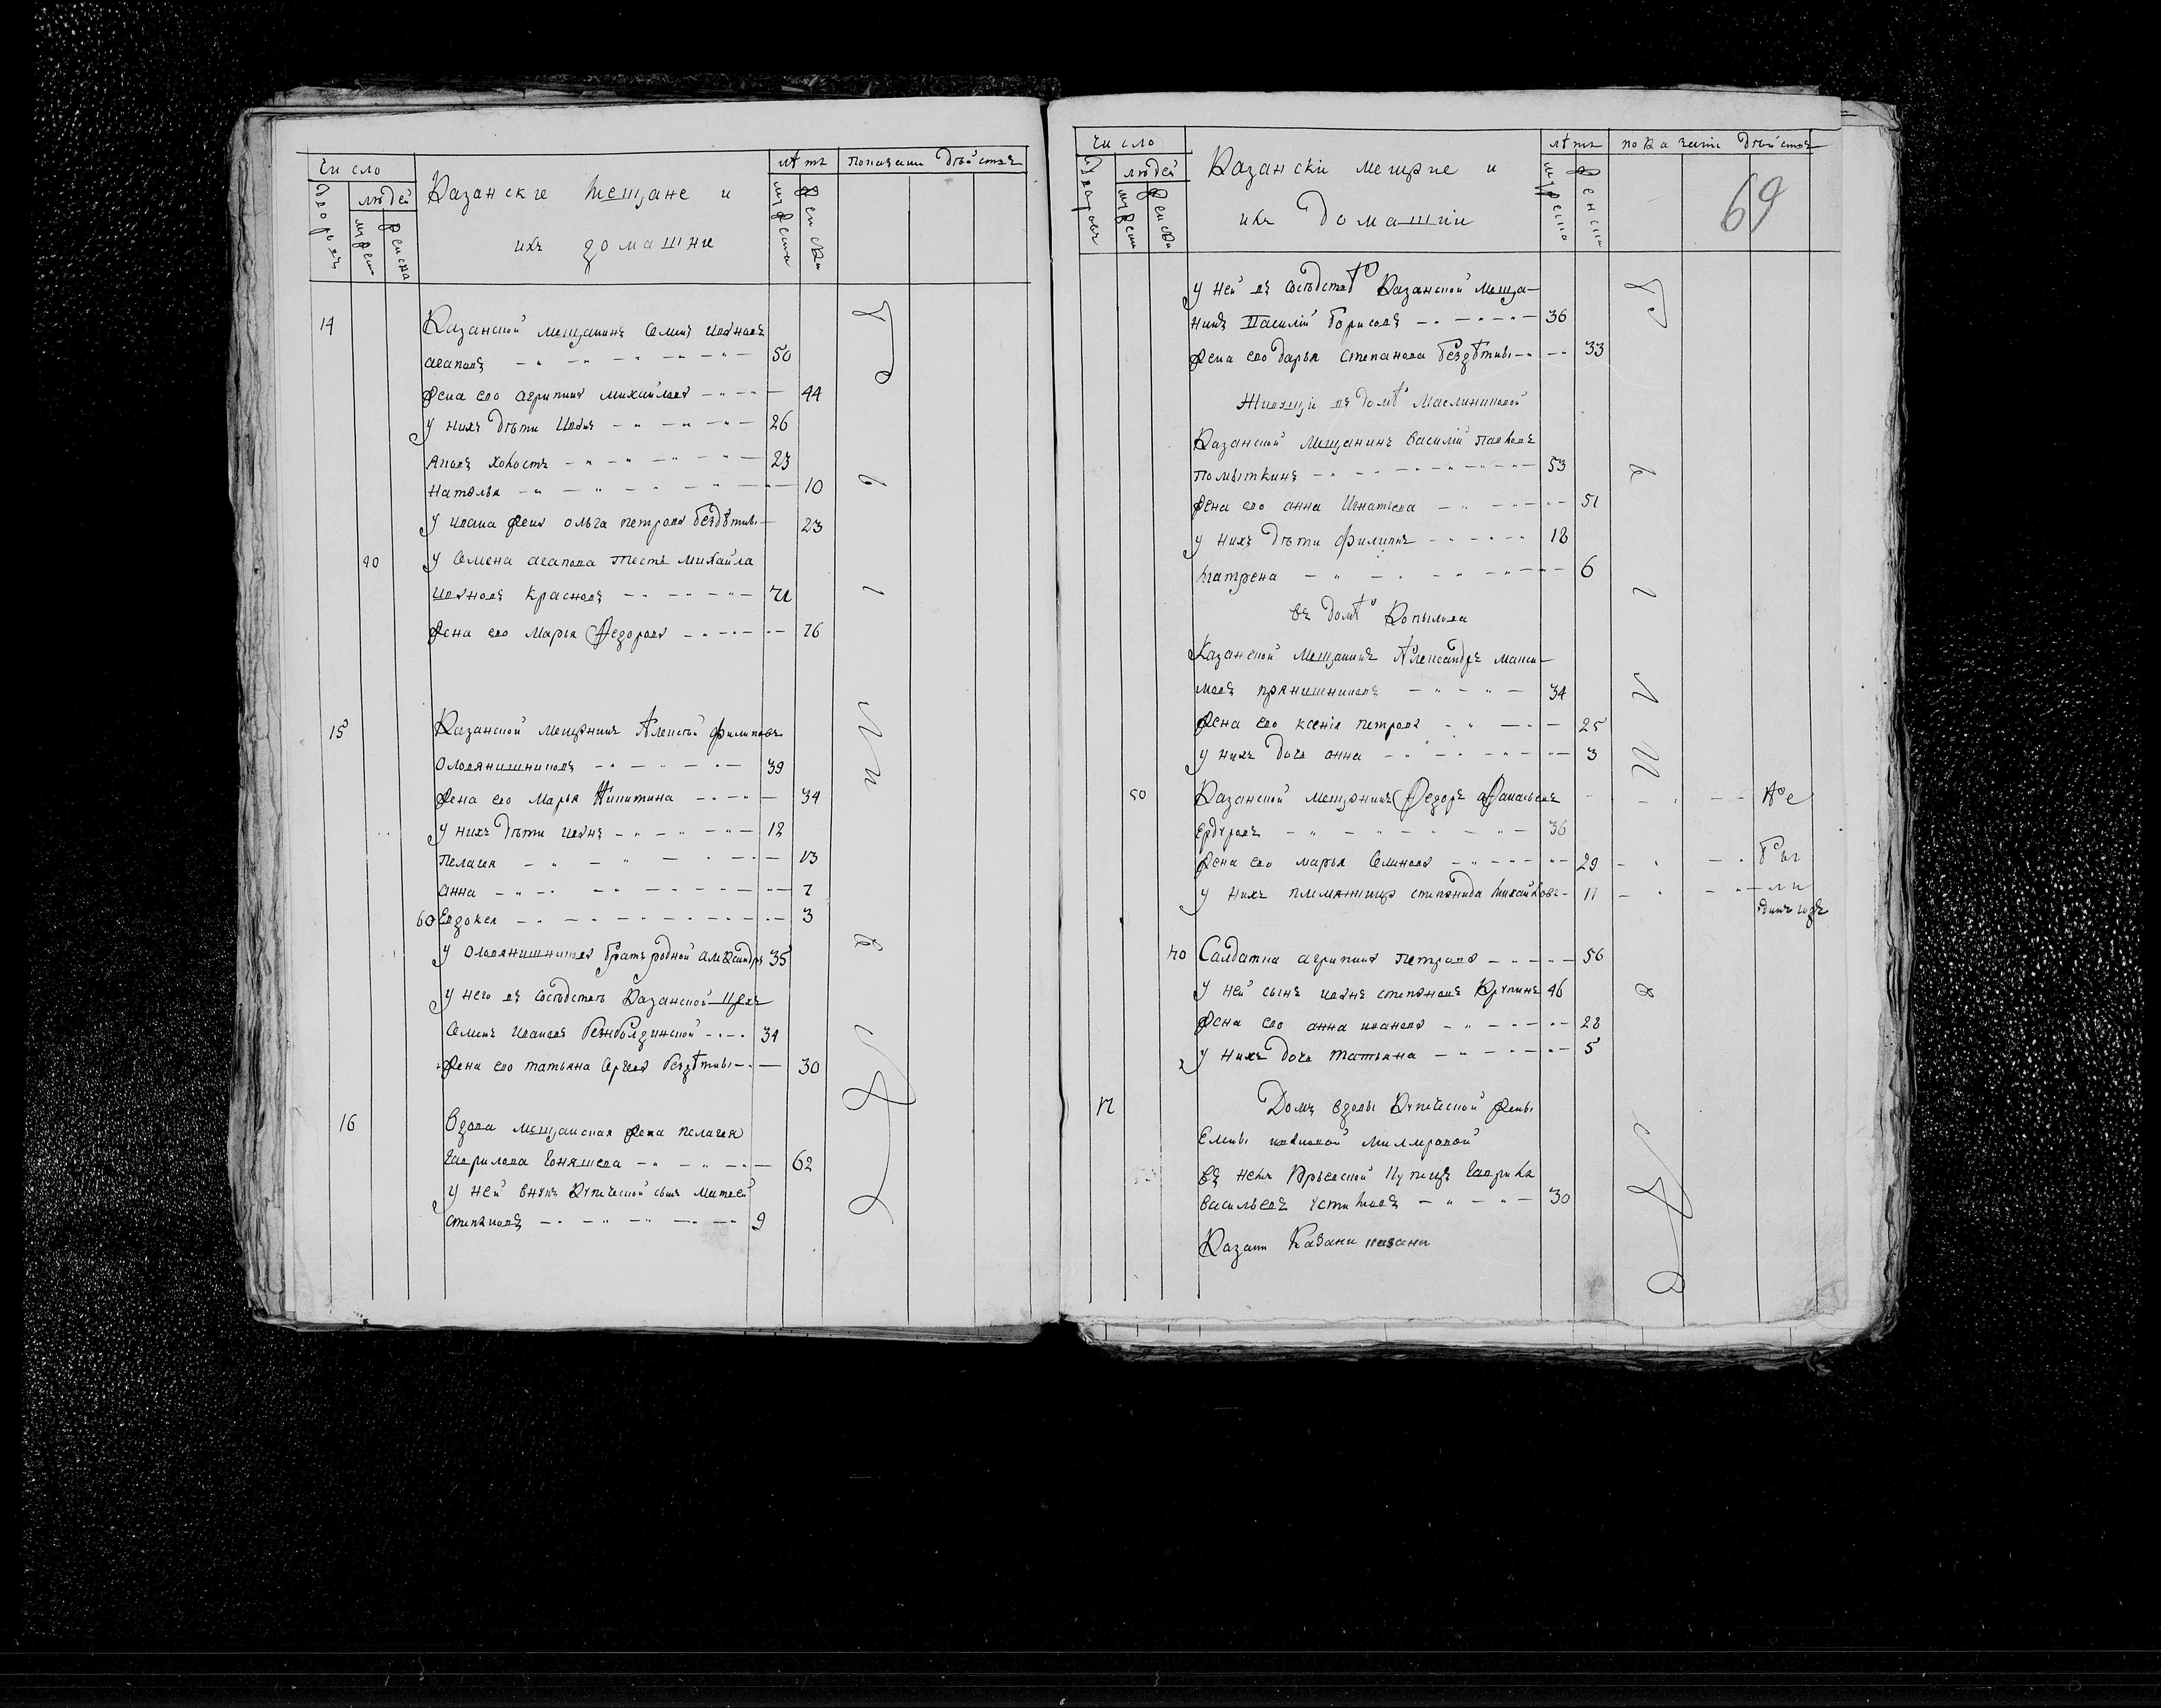 число
лѣтъ
показаніи дѣйства
дворовъ
людей
мужеска
женска
мужеска
женска
Казанские мещане и
ихъ домашни
14 Казанской мещанинъ Семенъ Ивановъ
агаповъ 50
жена его агрипина михайлова 44
у нихъ дѣти Иванъ 26
яковъ холостъ 23
наталья 10
у ивана жена ольга петрова бездѣтны 23
40 у Семена агапова тесть михайла
ивановъ красновъ 71
жена его марья Федорова 76
15 Казанской мещанинъ Алексѣй филиповъ
Оловянишниковъ 39
жена его марья Никитина 34
у нихъ дѣти иванъ 12
пелагея 13
анна 7
60 Евдокея 3
у оловянишникова братъ родной александръ 35
у него въ сосѣдствѣ Казанской цеха
Семенъ Ивановъ 34
жена его татьяна бездѣтны 30
16 Вдова мещанская жена пелагея
гаврилова 62
у ней внукъ Купеческой сынъ матвей
степановъ 9
число
лѣтъ
показаніи дѣйства
дворовъ
людей
мужеска
женска
мужеска
женска
Казанскіи мещане и
ихъ Домашніи
69
у ней въ сосѣдствѣ Казанской меща-
нинъ Василій борисовъ 36
жена его дарья степанова бездѣтны 33
Живущіи въ домѣ Маслениковой
Казанской мещанинъ василій павловъ
помыткинъ 53
жена его анна Игнатьева 51
у нихъ дѣти филипъ 12
матрена 6
въ домѣ Копылова
Казанской мещанинъ Александръ макси-
мовъ прянишниковъ 34
жена его ксенія петрова 25
у нихъ дочь анна 3
50 Казанской мещанинъ Федоръ афанасьевъ не
36
жена его марья Семенова 29 бы
у нихъ племянница степанида михайлова 11 ли
одинъ годъ
70 Салдатка агрипина петрова 56
у ней сынъ иванъ степановъ 46
жена его анна иванова 28
у нихъ дочь татьяна 5
17 Домъ вдовы Купеческой жены
Елены ивановой миллеровой
въ немъ Купецъ гаврила
васильевъ устиновъ 30
Казани Казани казани